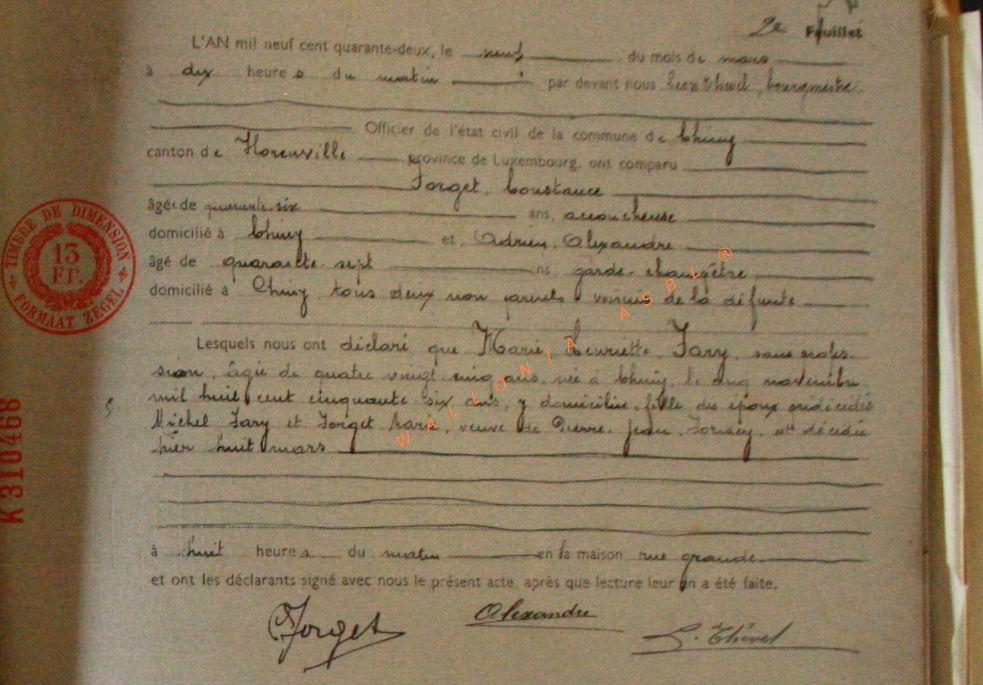 2e Feuillet
L'AN mil neuf cent quarante-deux, le neuf du mois de mars
à dix heures du matin par devant nous Léon Thével, bourgmestre
Officier de l'état civil de la commune de Chiny
canton de Florenville province de Luxembourg, ont comparu
Forget, Constance
âgée de quarante-six ans, accoucheuse
domicilié à Chiny et Adrien Alexandre
âgé de quarante-sept ans, garde-champêtre
domicilié à Chiny, tous deux non parents voisins de la défunte
Lesquels nous ont déclaré que Marie Henriette Jary, sans profes-
sion, âgée de quatre vingt cinq ans, née à Chiny, le cinq novembre
mil huit cent cinquante six ans, y domiciliée, fille des époux prédécédés
Michel Jary et Forget Marie, veuve de Pierre-Jean est décédée
hier huit mars
à huit heures du matin en la maison rue grande
et ont les déclarants signé avec nous le présent acte, après que lecture leur en a été faite.
Forget Alexandre L. Thével
TIMBRE DE DIMENSION
13 FR.
FORMAAT ZEGEL
K310468
WALLONIA ASBL ®